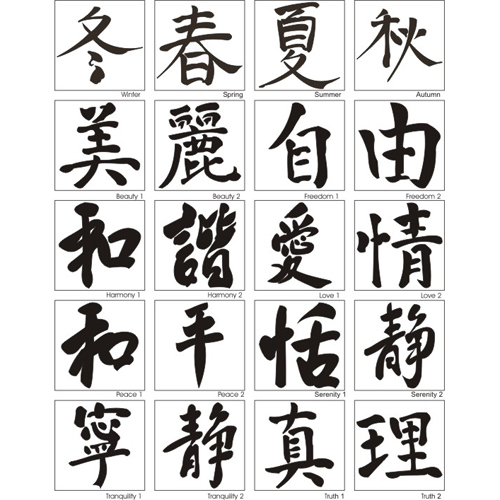 冬 春 夏 秋
Winter Spring Summer Autumn
美 麗 自 由
Beauty 1 Beauty 2 Freedom 1 Freedom 2
和 諧 愛 情
Harmony 1 Harmony 2 Love 1 Love 2
和 平 恬 静
Peace 1 Peace 2 Serenity 1 Serenity 2
寧 静 真 理
Tranquility 1 Tranquility 2 Truth 1 Truth 2